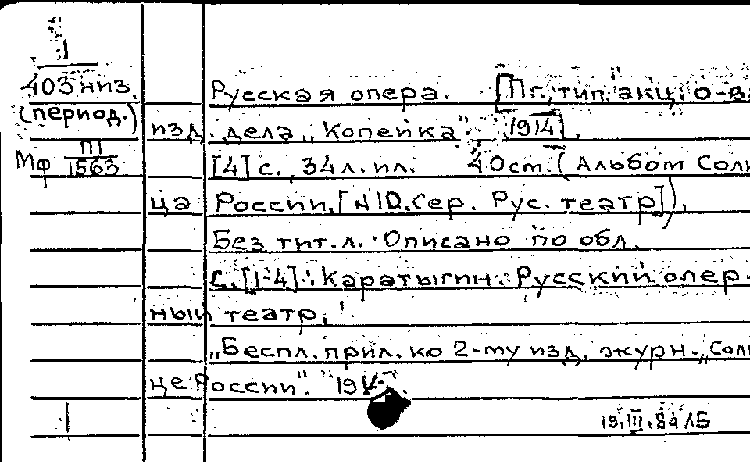 1
403 низ.
(период.)
Мф III
1563
Русская опера. [Пг., тип. акц. о-ва
изд. дела „Копейка", 1914].
[4] с., 34 л. ил. 40 cm. (Альбом Солн
ца России. [N 10. Сер. Рус. театр]).
Без тит. л. Описано по обл.
С. [1-4]: Каратыгин. Русский опер-
ный театр.
„Беспл. прил. ко 2-му изд. журн. „Сол
це России".
19.III.84 ЛБ